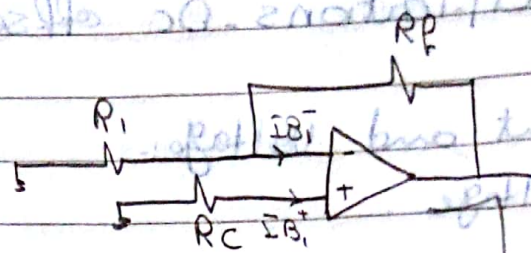 Rf
R1
IB1-
-
+
RC IB1+